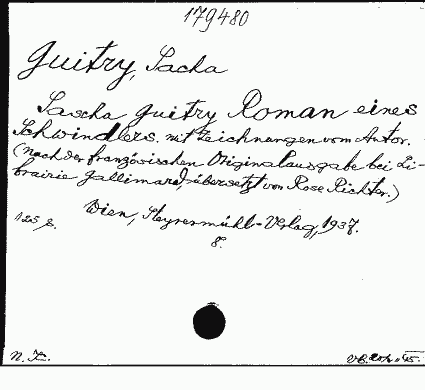 179480
Guitry, Sacha
Sascha Guitry Roman eines
Schwindlers. mit Zeichnungen vom Autor.
(nach der französischen Originalausgabe bei Li-
brairie Gallimard, übersetzt von Rose Richter.)
Wien, Steyrermühl-Verlag, 1937.
125 S. 8.
N. K.